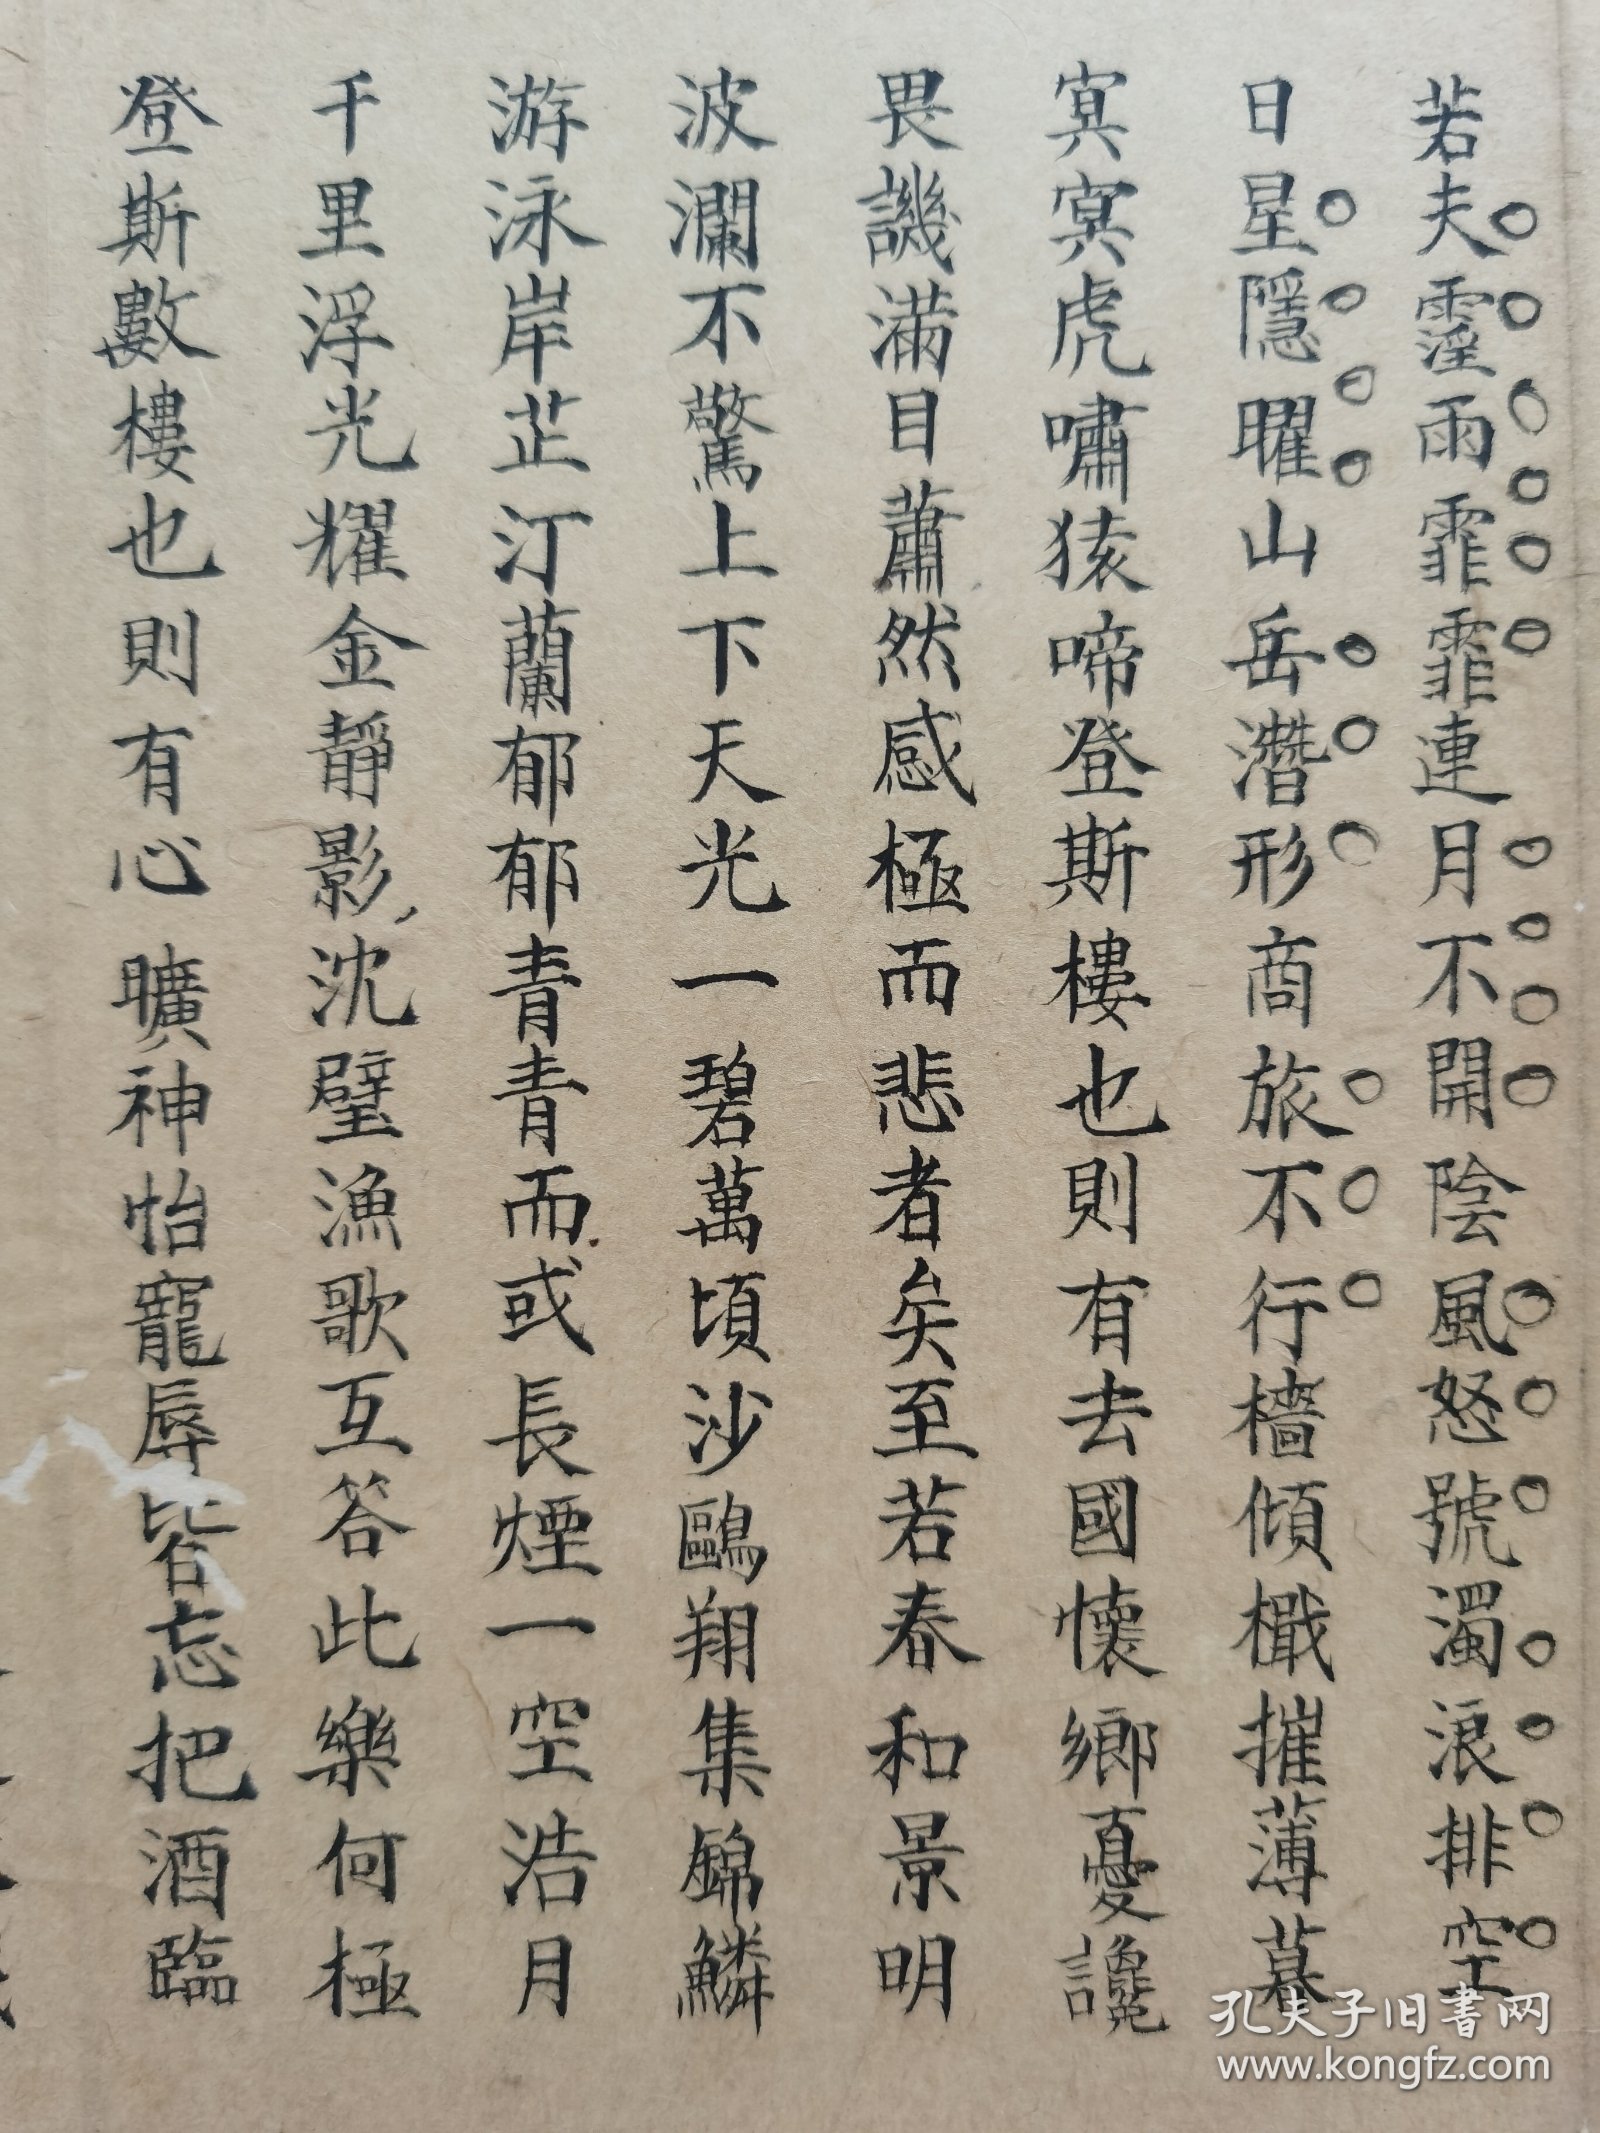 若夫霪雨霏霏連月不開陰風怒號濁浪排空
日星隱曜山岳潛形商旅不行檣傾檝摧薄暮
冥冥虎嘯猿啼登斯樓也則有去國懷鄉憂讒
畏譏滿目蕭然感極而悲者矣至若春和景明
波瀾不驚上下天光一碧萬頃沙鷗翔集錦鱗
游泳岸芷汀蘭郁郁青青而或長煙一空浩月
千里浮光耀金靜影沈璧漁歌互答此樂何極
登斯數樓也則有心曠神怡寵辱皆忘把酒臨
孔夫子旧書网
www.kongfz.com